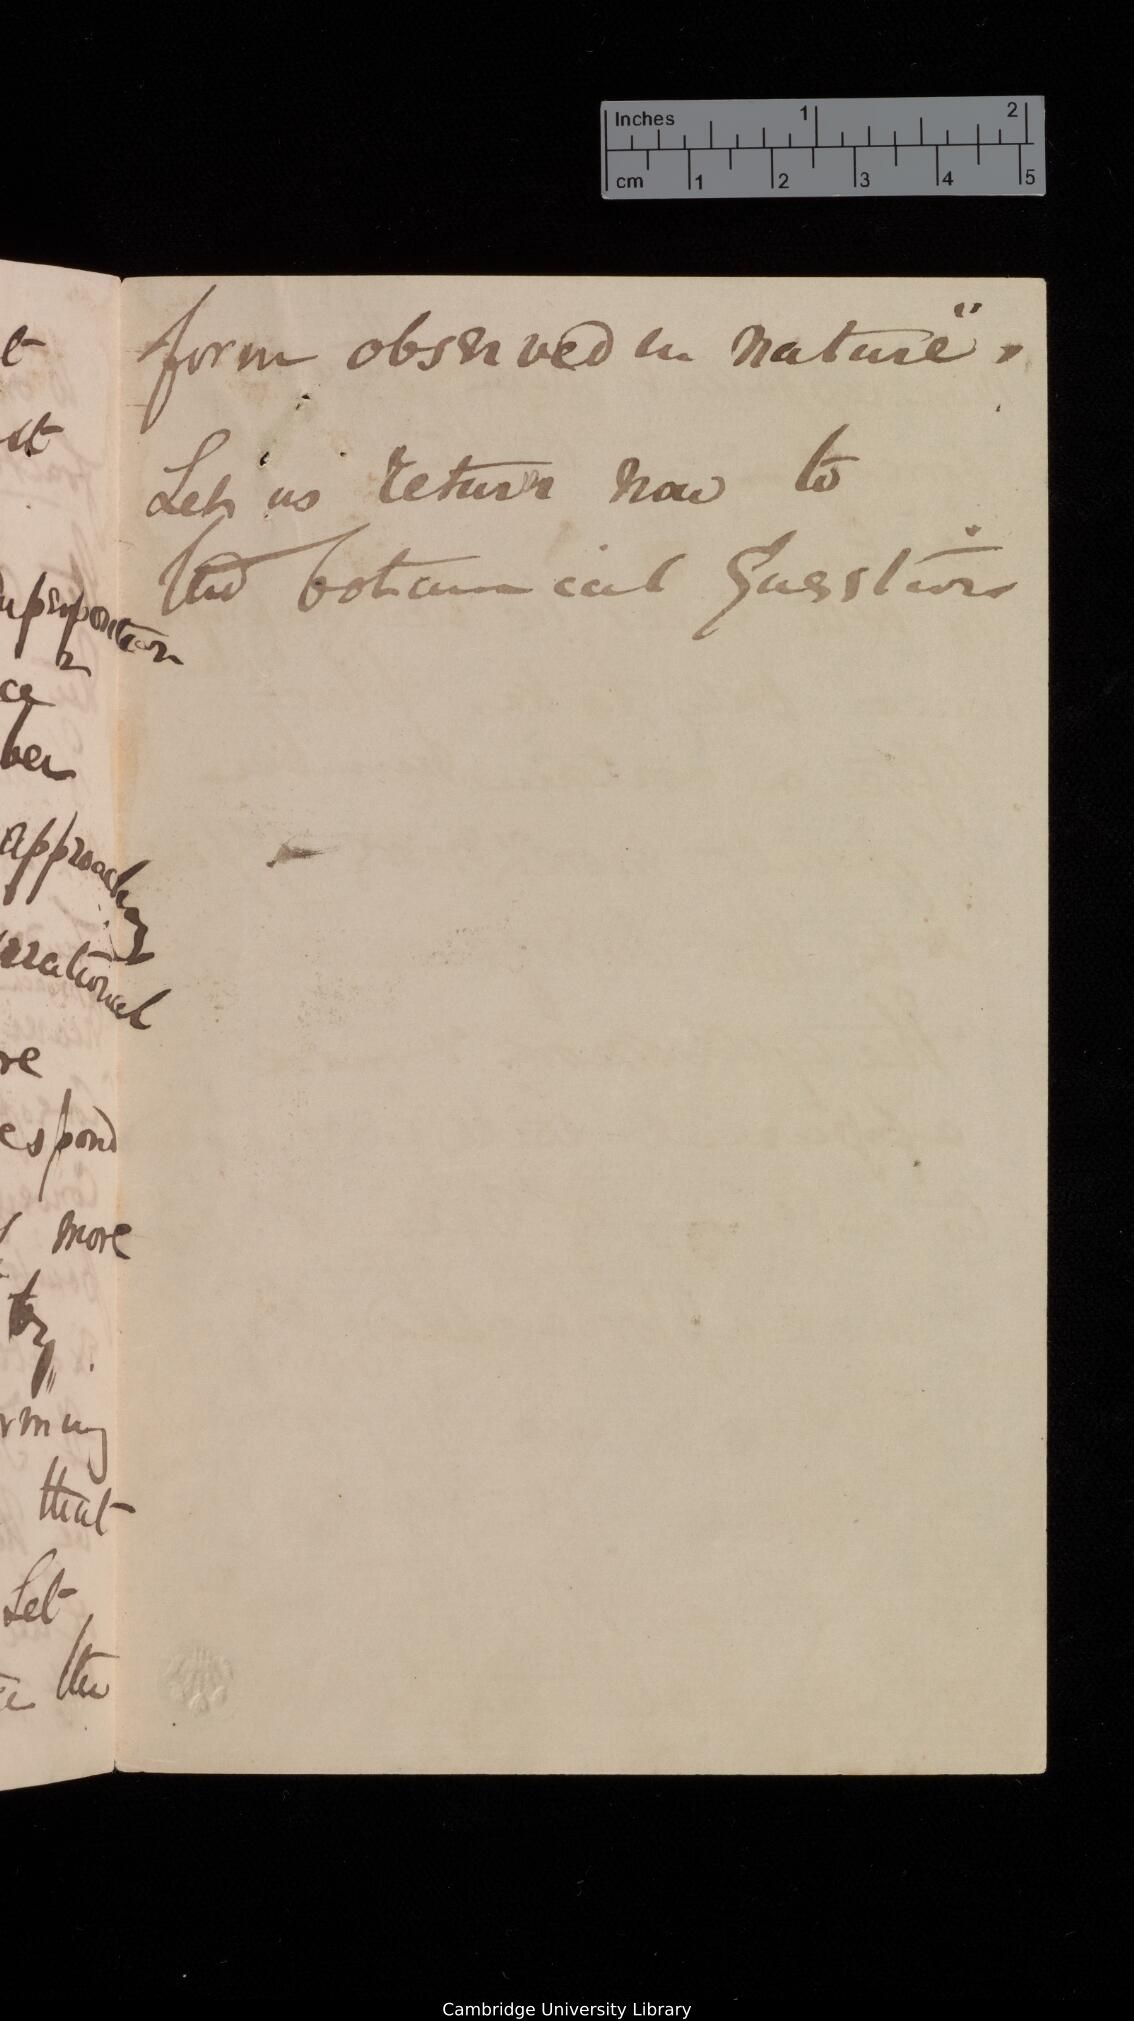 Inches 1 2
cm 1 2 3 4 5
form observed in nature".
Let us return now to
the botanical Question
t
st
superposition
ce
ber
approaching
irrational
re
espond
more
by
rming
that
Let
the
Cambridge University Library